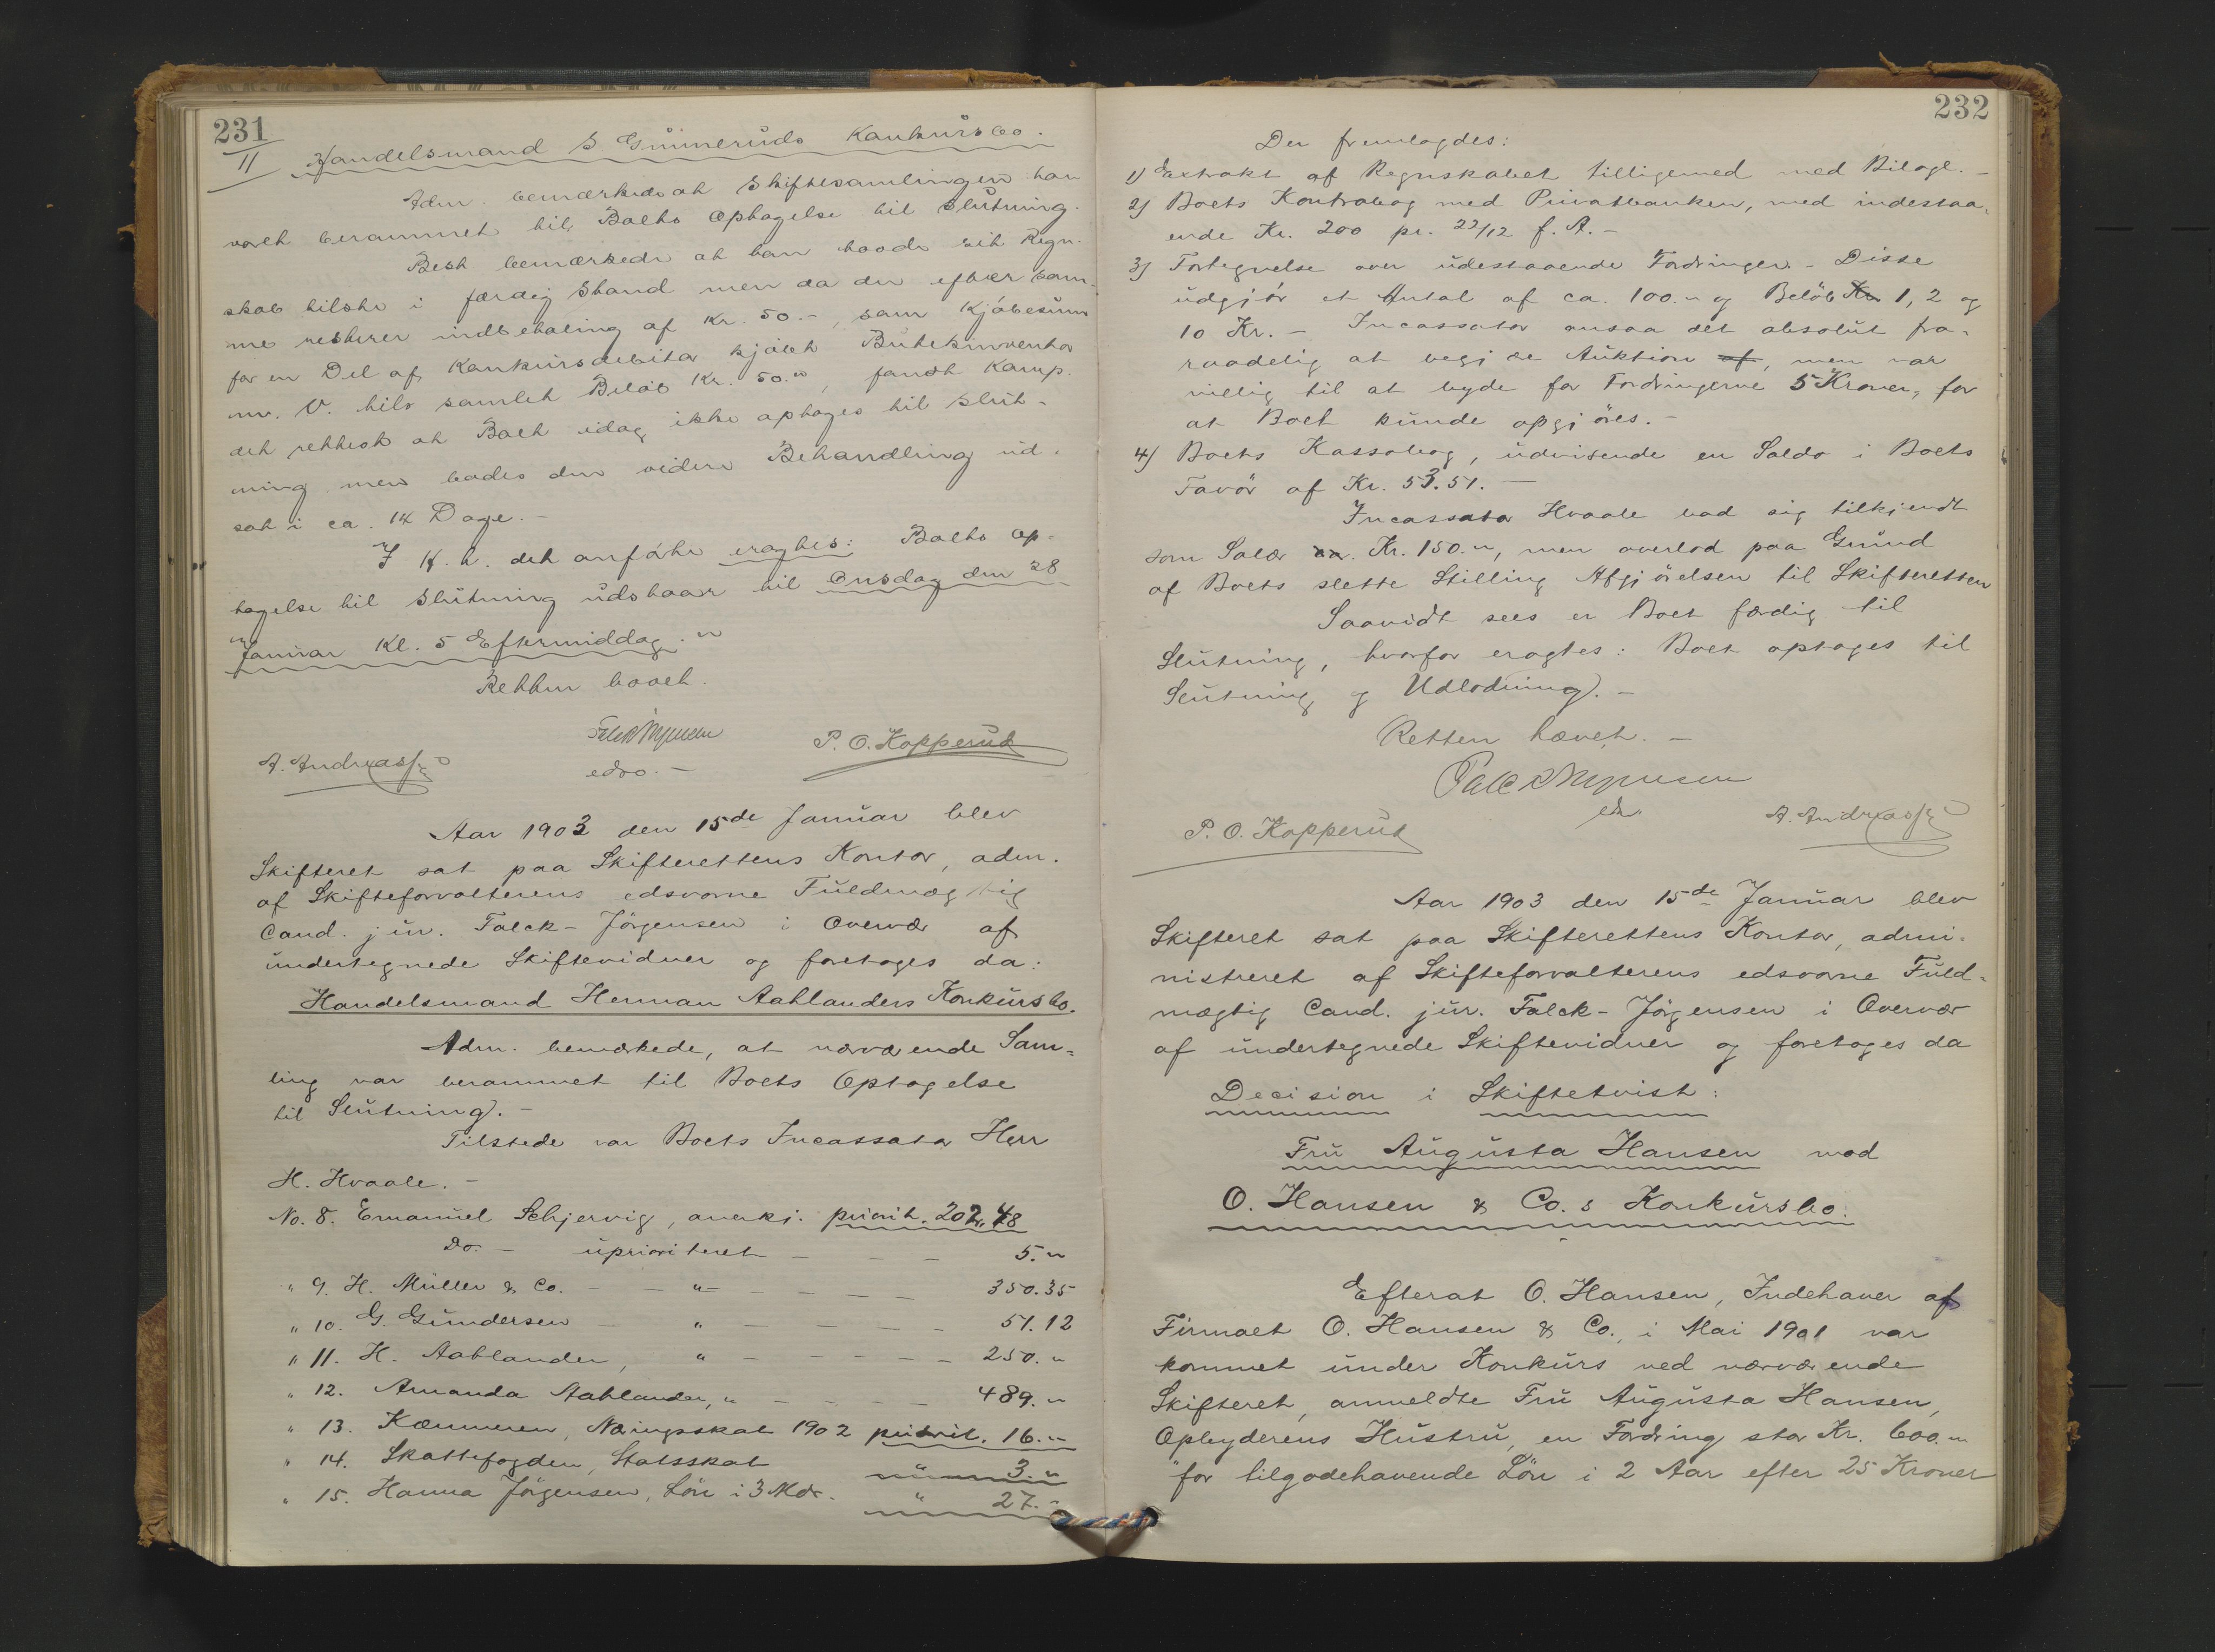 231
II Handelsmand S Gunneruds Konkursbo.
Adm. bemærkede at Skiftesamlingen har
været berammet til Boets Optagelse til Slutning.
Best bemærkede at han havde sit Regn-
skab tilstr i færdig Stand men da der efter sam-
me resterer indbetaling af Kr. 50.-, som Kjöbesum
for en Del af Konkursdebitor kjöbt Butikinventar
m. V. tils samlet Belöb Kr. 50.", fandt Komp.
det rettest at Boet idag ikke optages til Slut-
ning men bades den videre Behandling ud-
sat i ca. 14 Dage.-
I H. t. det anförte eragtes: Boets Op-
tagelse til Slutning udstaar til Onsdag den 28
Januar Kl. 5 Eftermiddag."
Retten hævet.
A. Andreassen
edsv.-
P. O. Kopperud
Aar 1903 den 15de Januar blev
Skifteret sat paa Skifterettens Kontor, adm.
af Skifteforvalterens edsvorne Fuldmægtig
Cand. jur. Falck-Jörgensen i Overvær af
undertegnede Skiftevidner og foretoges da:
Handelsmand Herman Aahlanders Konkursbo.
Adm. bemærkede, at nærværende Sam-
ling var berammet til Boets Optagelse
til Slutning.-
Tilstede var Boets Incassator Herr
H. Hvaale.-
No. 8. Emanuel Schjervig, anerkj. priorit. 202.48
Do.- uprioriteret - - 5."
" 9. H. Müller & Co. - - " - - - - - 350.35
" 10. G. Gundersen - " - - - - 51.12
" 11. H. Aahlander, " - - - - - 250."
" 12. Amanda Aahlander, " - - - - 489."
" 13. Kæmneren, Næringsskat 1902 priorit. 16."
" 14. Skattefogden, Statsskat " 3."
" 15. Hanna Jörgensen, Lön i 3 Mdr. " 27.-
232
Der fremlagdes:
1) Extrakt af Regnskabet tilligemed med Bilage.-
2) Boets Kontrabog med Privatbanken, med indestaa-
ende Kr. 200 pr. 22/12 f. A.-
3) Fortegnelse over udestaaende Fordringer.- Disse
udgjör et Antal af ca. 100." og Belöb Kr. 1, 2 og
10 Kr.- Incassator ansaa det absolut fra-
raadelig at begjære Auktion af, men var
villig til at byde for Fordringerne 5 Kroner, for
at Boet kunde opgjöres.-
4) Boets Kassabog, udvisende en Saldo i Boets
Favör af Kr. 53.51.-
Incassator Hvaale bad sig tilkjendt
som Salær Kr. 150.", men overlod paa Grund
af Boets slette Stilling Afgjörelsen til Skifteretten
Saavidt sees er Boet færdig til
Slutning, hvorfor eragtes: Boet optages til
Slutning og Udlodning.-
Retten hævet.-
P. O. Kopperud
A. Andreassen
Aar 1903 den 15de Januar blev
Skifteret sat paa Skifterettens Kontor, admi-
nistreret af Skifteforvalterens edsvorne Fuld-
mægtig Cand. jur. Falck-Jörgensen i Overvær
af undertegnede Skiftevidner og foretoges da
Decision i Skiftetvist:
Fru Augusta Hansen mod
O. Hansen & Co.s Konkursbo.
Efterat O. Hansen, Indehaver af
Firmaet O. Hansen & Co., i Mai 1901 var
kommet under Konkurs ved nærværende
Skifteret, anmeldte Fru Augusta Hansen,
Opbyderens Hustru, en Fordring stor Kr. 600."
"for tilgodehavende Lön i 2 Aar efter 25 Kroner